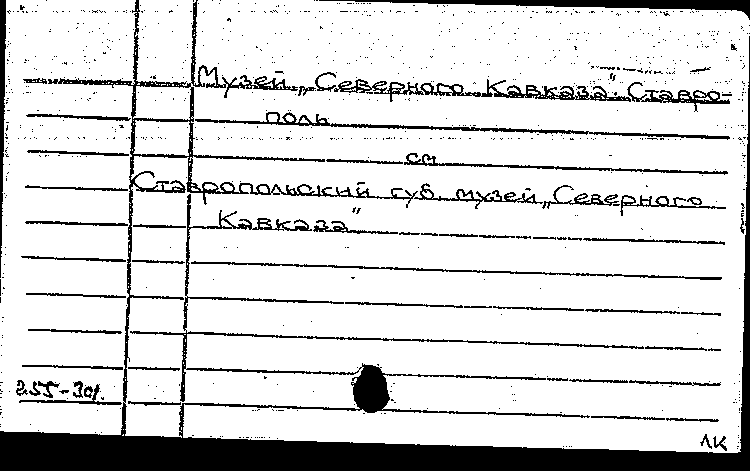 Музей „Северного Кавказа". Ставро-
поль
см
Ставропольский губ. музей „Северного
Кавказа"
ЛК